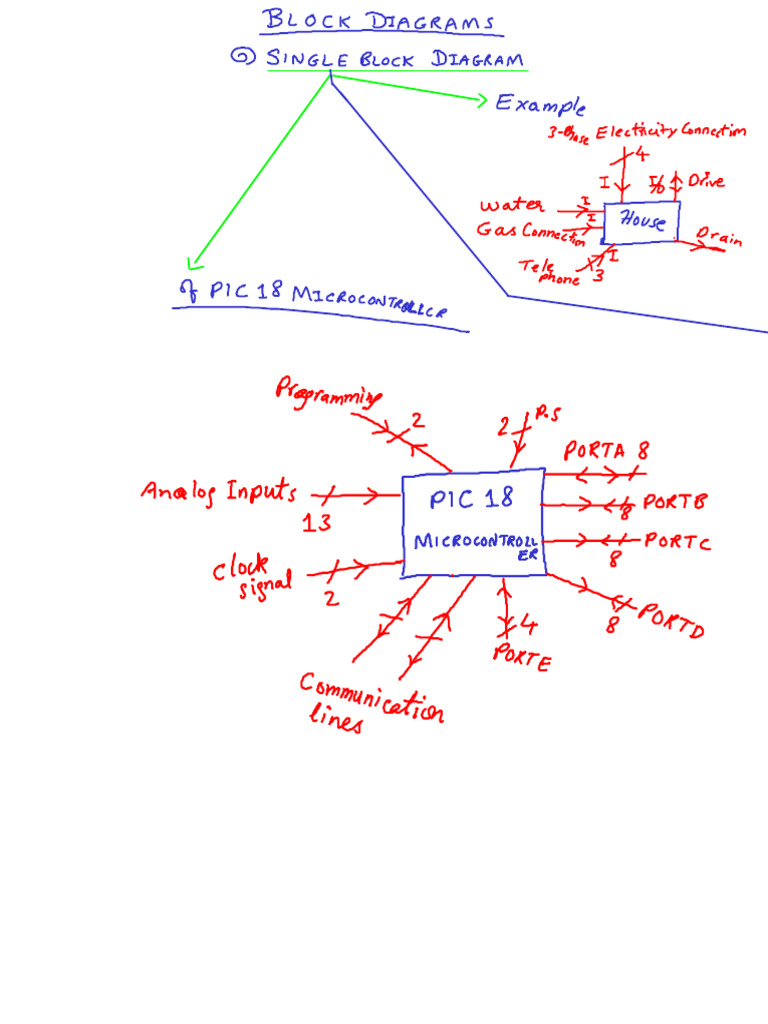 BLOCK DIAGRAMS
① SINGLE BLOCK DIAGRAM
Example
3-Phase Electricity Connection
4
I
I/O
Drive
Water
I
House
Gas Connection
I
Drain
Telephone
3
I
of PIC 18 MICROCONTROLLER
Programming
2
2
P.S
PORTA 8
Analog Inputs
13
PIC 18
MICROCONTROLL
ER
8
PORTB
PORTC
8
Clock
signal
2
4
PORTE
8
PORTD
Communication
lines